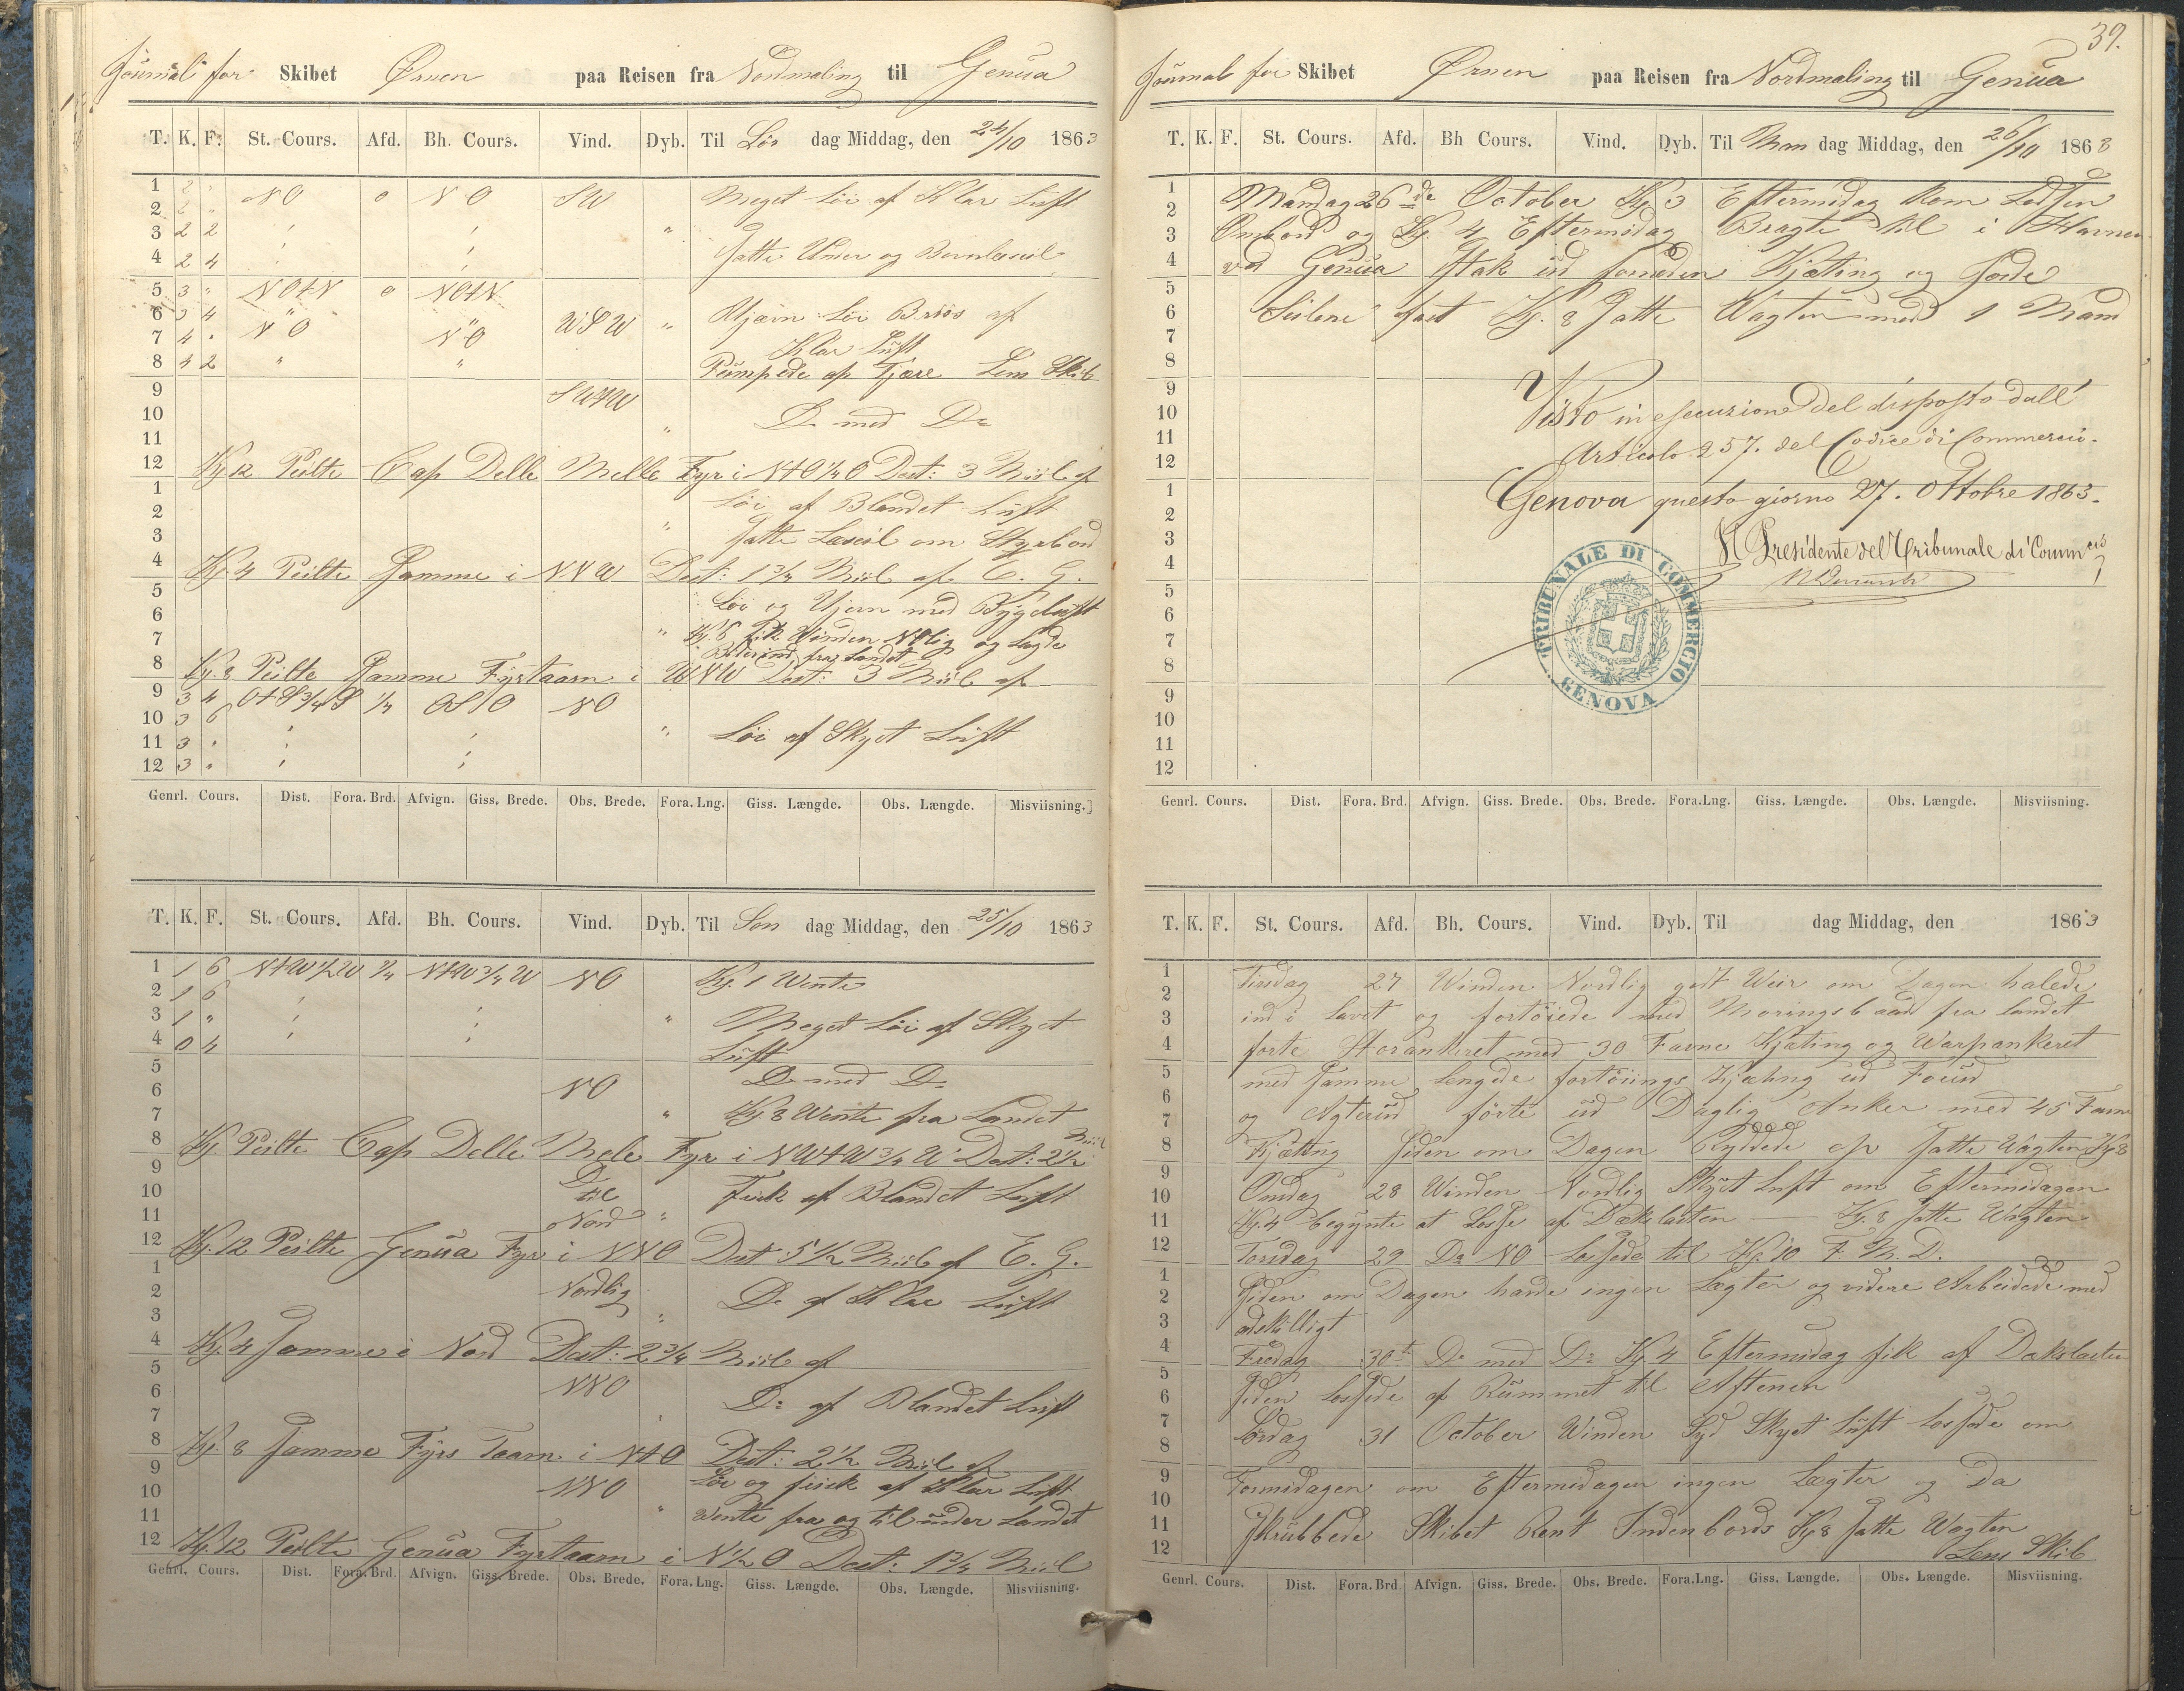 Journal for Skibet Ørnen paa Reisen fra Nordmaling til Genua
T. K. F. St. Cours. Afd. Bh. Cours. Vind. Dyb. Til Lør dag Middag, den 24/10 1863
1 2 " NO 0 NO SW Meget Løi af Klar Luft
2 2 "
3 2 2 "
4 2 4 Satte Under og Bovnlæseil
5 3 " NOtN 0 NOtN
6 3 4 WSW " Ujævn Løi Briis af
7 4 " NO NO Klar Luft
8 4 2 " " Pumpede af Fjære Lens Skib
9 SWtW
10 D. med Do
11 "
12 Kj 12 Peilte Cap Delle Melle Fyr i NtO 1/4 O Dest: 3 Miil af
1 Løi af Blandet Luft
2
3 " Satte Læseil om Styrbord
4 Kj. 4 Peilte Samme i NNW Dest: 1 3/4 Miil af E. G.
5 Løi og Ujevn med Bygeluft
6
7 " Kj. 6 fik Vinden NOlig og Lagde
Bidevind fra Landet
8 Kj. 8 Peilte Samme Fyrtaarn i WNW Dest: 3 Miil af
9 3 4 OtS 3/4 S 1/4 OSO NO
10 3 6
11 3 " Løi af Skyet Luft
12 3 "
Genrl. Cours. Dist. Fora. Brd. Afvign. Giss. Brede. Obs. Brede. Fora. Lng. Giss. Længde. Obs. Længde. Misviisning.
T. K. F. St. Cours. Afd. Bh. Cours. Vind. Dyb. Til Søn dag Middag, den 25/10 1863
1 1 6 NtW 1/2 W 1/4 NtW 3/4 W NO Kj. 1 Wente
2 1 6
3 1 " " Meget Løi af Skyet
4 0 4 Luft
5 D. med Do
6 NO
7 " Kj 8 Wente fra Landet
8 Kj. Peilte Cap Delle Mele Fyr i NWtW 3/4 W Dest: 2 1/2 Miil
9 D.
10 til Fisk af Blandet Luft
11 Nord "
12 Kj. 12 Peilte Genua Fyr i NNO Dest 5 1/2 Miil af E. G.
1 Nordlig
2 D. af Klar Luft
3 "
4 Kj. 4 Samme i Nord Dest: 2 3/4 Miil af
5 NNO
6 Do af Blandet Luft
7
8 Kj. 8 Samme Fyrs Taarn i NtO Dest: 2 1/2 Miil af
9 Løi og fisck af Klar Luft
10 NNO
11 " Wente fra og til under Landet
12 Kj. 12 Peilte Genua Fyrtaarn i N 1/2 O Dest: 1 3/4 Miil
Genrl. Cours. Dist. Fora. Brd. Afvign. Giss. Brede. Obs. Brede. Fora. Lng. Giss. Længde. Obs. Længde. Misviisning.
39.
Journal for Skibet Ørnen paa Reisen fra Nordmaling til Genua
T. K. F. St. Cours. Afd. Bh Cours. Vind. Dyb. Til Man dag Middag, den 26/10 1863
1 Mandag 26de October Kj 3 Eftermidag kom Lodsen
2
3 Ombord og Kj 4 Eftermidag Bragte til i Havnen
4 ved Genua Stak ud forneden Kjæting og Giorde
5
6 Seilene fast Kj. 8 Satte Wagten med 1 Mand
7
8
9
10 Visto in esecuzione del disposto dall'
11 Articolo 257. del Codice di Commercio.
12
1 Genova questo giorno 27. Ottobre 1863.
2
3 Il Presidente del Tribunale di Commcio
4
5
6
7
8
TRIBUNALE DI COMMERCIO GENOVA
9
10
11
12
Genrl. Cours. Dist. Fora. Brd. Afvign. Giss. Brede. Obs. Brede. Fora.Lng. Giss. Længde. Obs. Længde. Misviisning.
T. K. F. St. Cours. Afd. Bh. Cours. Vind. Dyb. Til dag Middag, den 1863
1 Tirsdag 27 Winden Nordlig godt Weir om Dagen halede
2
3 ind i Lavet og fortöiede med Moringsbaad fra Landet
4 førte Storankeret med 30 Favne Kjæting og Warpankeret
5 med Samme Lengde fortöiings Kjæting ud Forud
6
7 og Agterud förte ud Daglig Anker med 45 Favne
8 Kjætting Siden om Dagen Ryddede op Satte Wagten Kj 8
9
10 Onsdag 28 Winden Nordlig Skyet Luft om Eftermidagen
11 Kj. 4 begynte at Losse af Dækslasten — Kj. 8 Satte Wagten
12 Torsdag 29 Do NO Lossede til Kj. 10 F. M. D.
1
2 Siden om Dagen havde ingen Lægter og videre Arbeidede med
3 adskilligt
4 Fredag 30te D. med Do Kj 4 Eftermidag fik af Dækslasten
5
6 Siden Lossede af Rummet til Aftenen
7 Lördag 31 October Winden Syd Skyet Luft Lossede om
8
9 Formidagen om Eftermidagen ingen Lægter og Da
10
11 Skrubbede Skibet Rent Indenbords Kj 8 Satte Wagten
12 Lens Skib
Genrl. Cours. Dist. Fora. Brd. Afvign. Giss. Brede. Obs. Brede. Fora.Lng. Giss. Længde. Obs. Længde. Misviisning.